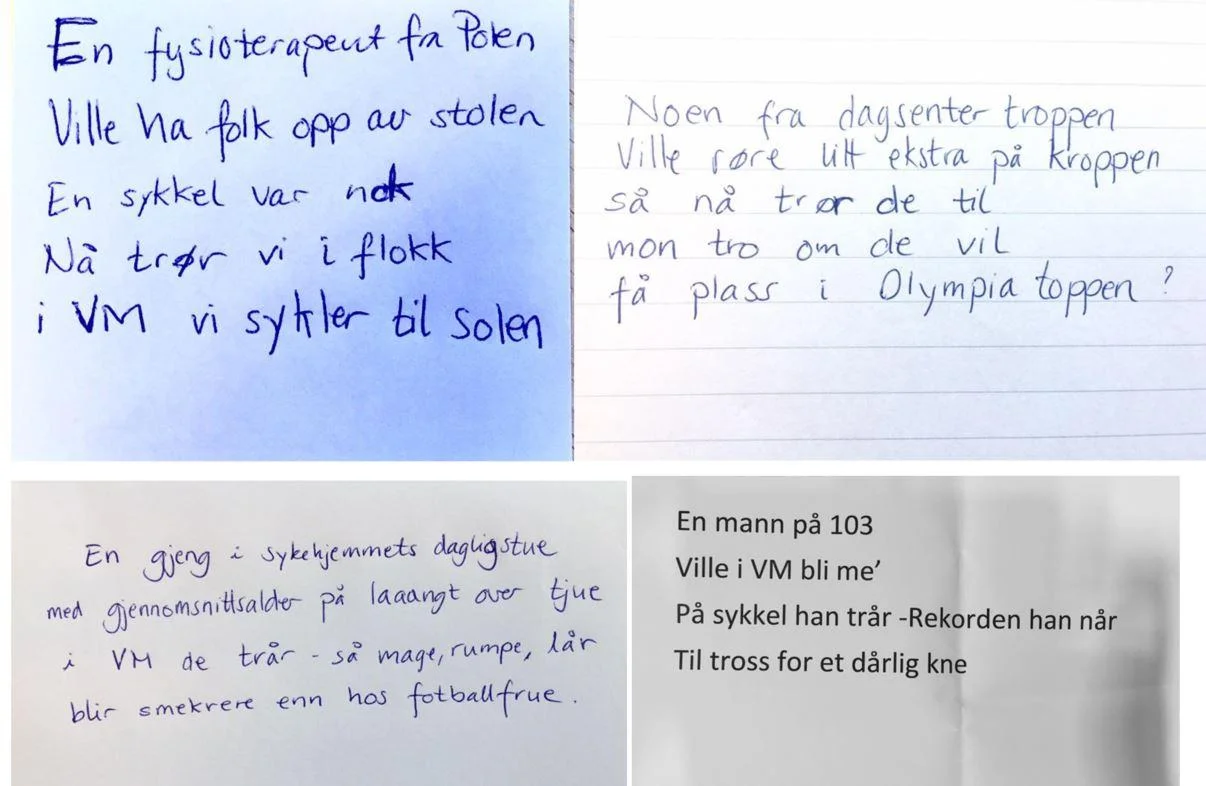 En fysioterapeut fra Polen
Ville ha folk opp av stolen
En sykkel var nok
Nå trør vi i flokk
i VM vi sykler til solen
Noen fra dagsenter troppen
Ville røre litt ekstra på kroppen
så nå trør de til
mon tro om de vil
få plass i Olympia toppen ?
En gjeng i sykehjemmets dagligstue
med gjennomsnittsalder på laaangt over tjue
i VM de trår - så mage, rumpe, lår
blir smekrere enn hos fotballfrue.
En mann på 103
Ville i VM bli me’
På sykkel han trår -Rekorden han når
Til tross for et dårlig kne